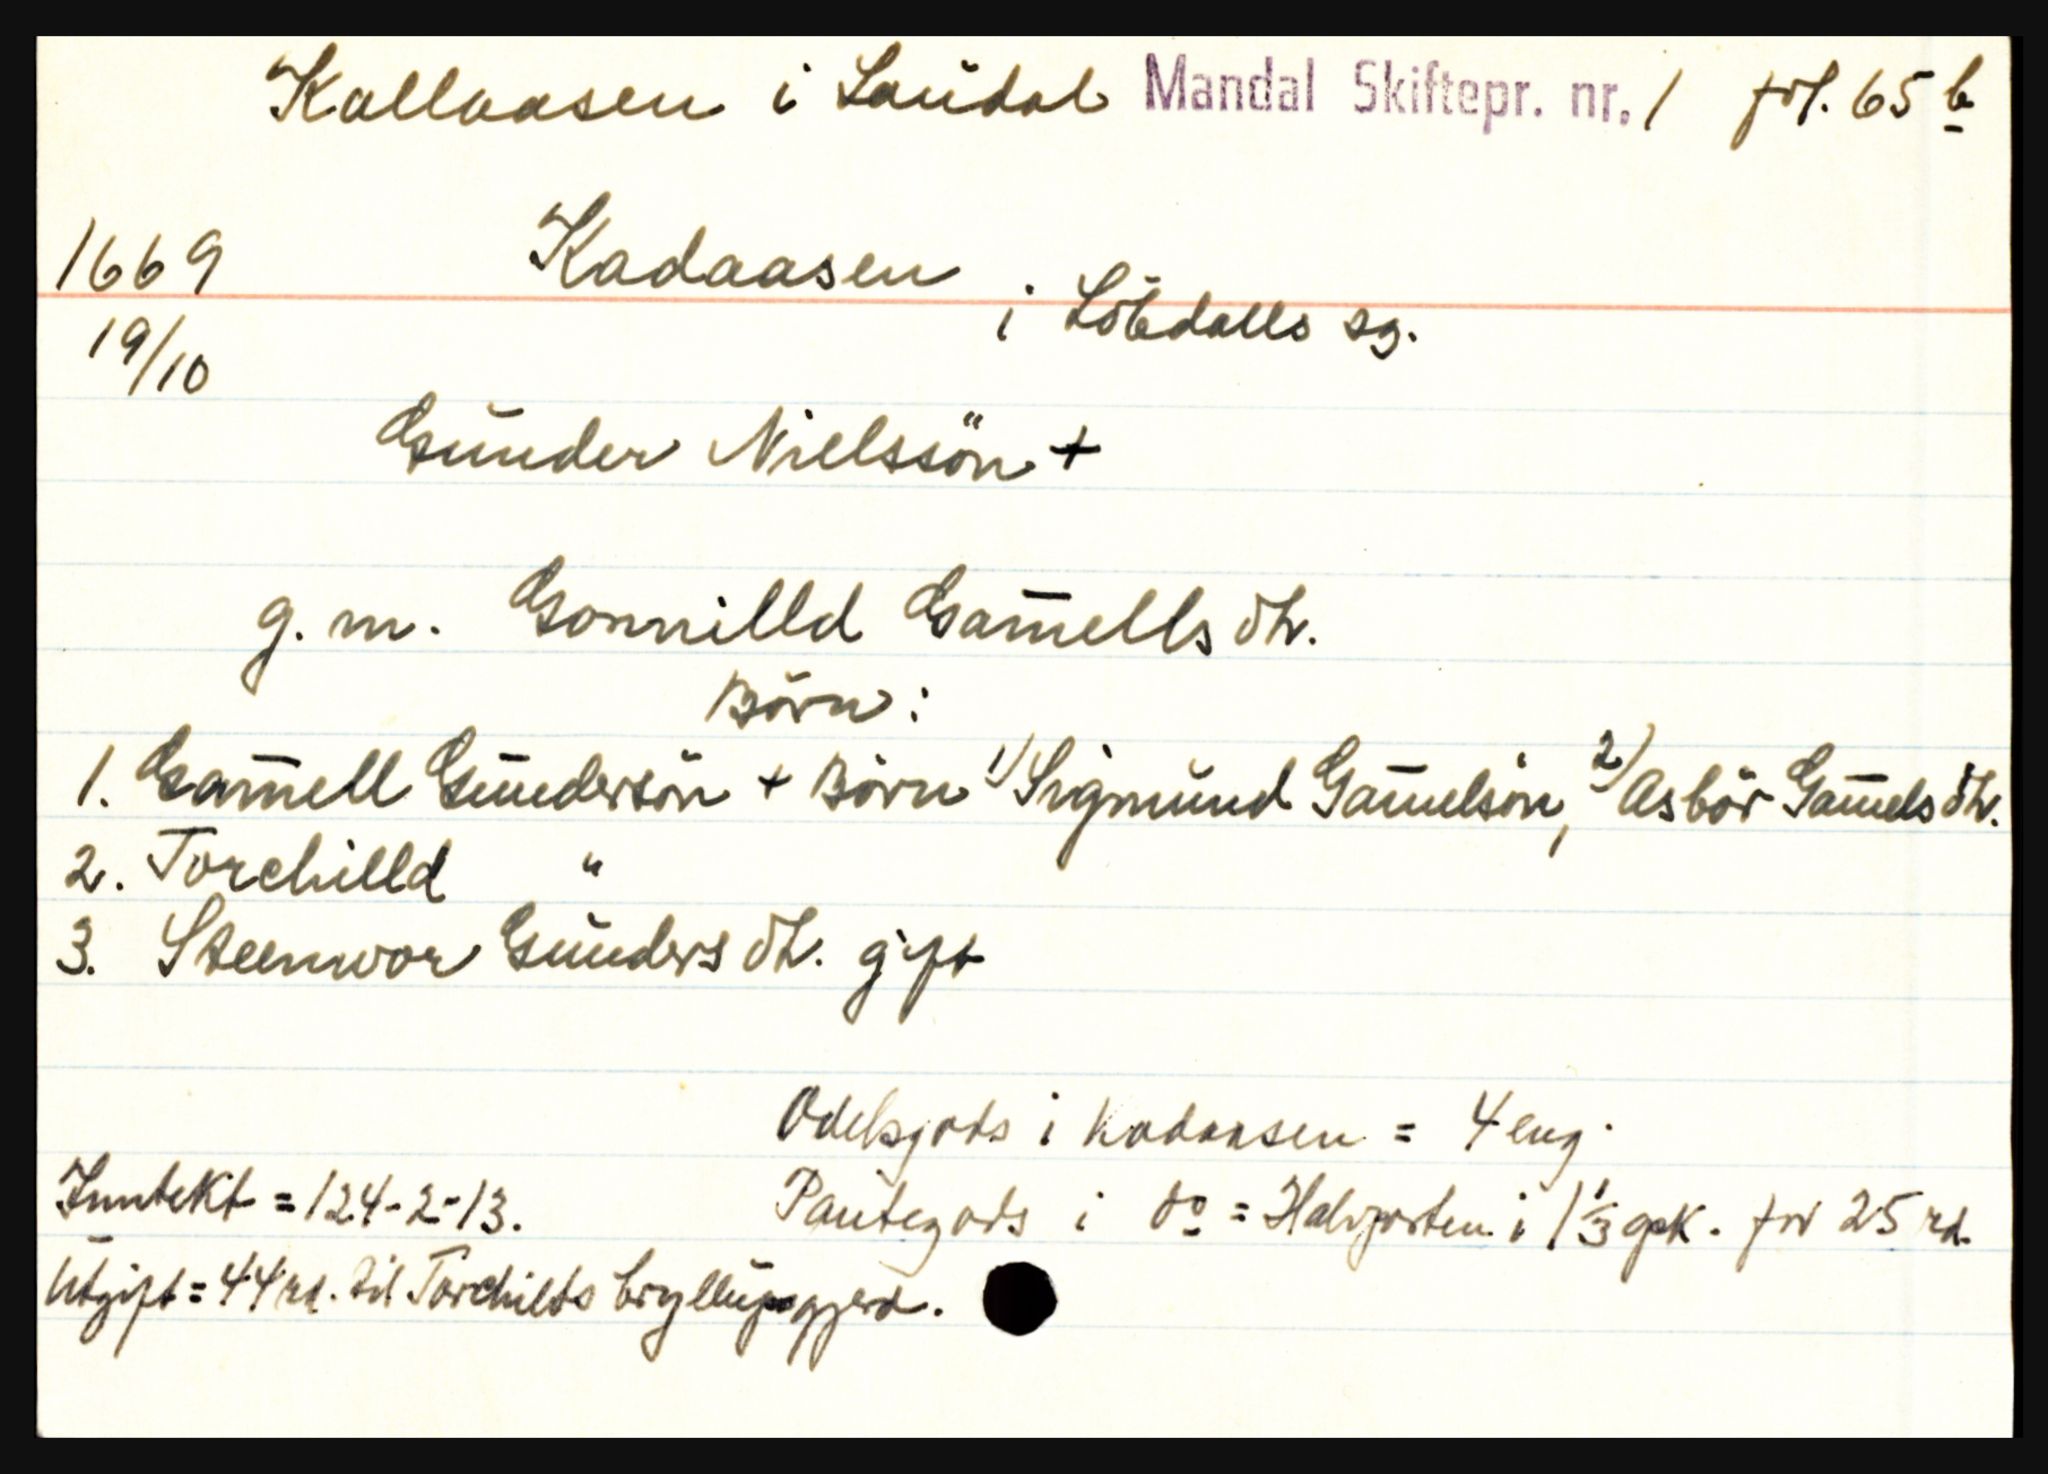 Kallaasen i Laudal Mandal Skiftepr. nr. 1 fol. 65 b
1669 Kadaasen
i Löbdalls sg.
19/10
Gunder Nielssön +
g. m. Gonnilld Gam̄ells dtr.
Börn:
1. Gam̄ell Gundersön + Börn 1) Sigmund Gam̄elsön, 2) Asbör Gam̄els dtr.
2. Torchilld "
3. Steenwor Gunders dtr. gift
Odelsgods i Kadaasen = 4 eng.
Inntekt = 124-2-13. Pantegods i do = Halvparten i 1 1/3 gpk. for 25 rd.
Utgift = 44 rd. til Torchilds bryllupsgjerd.